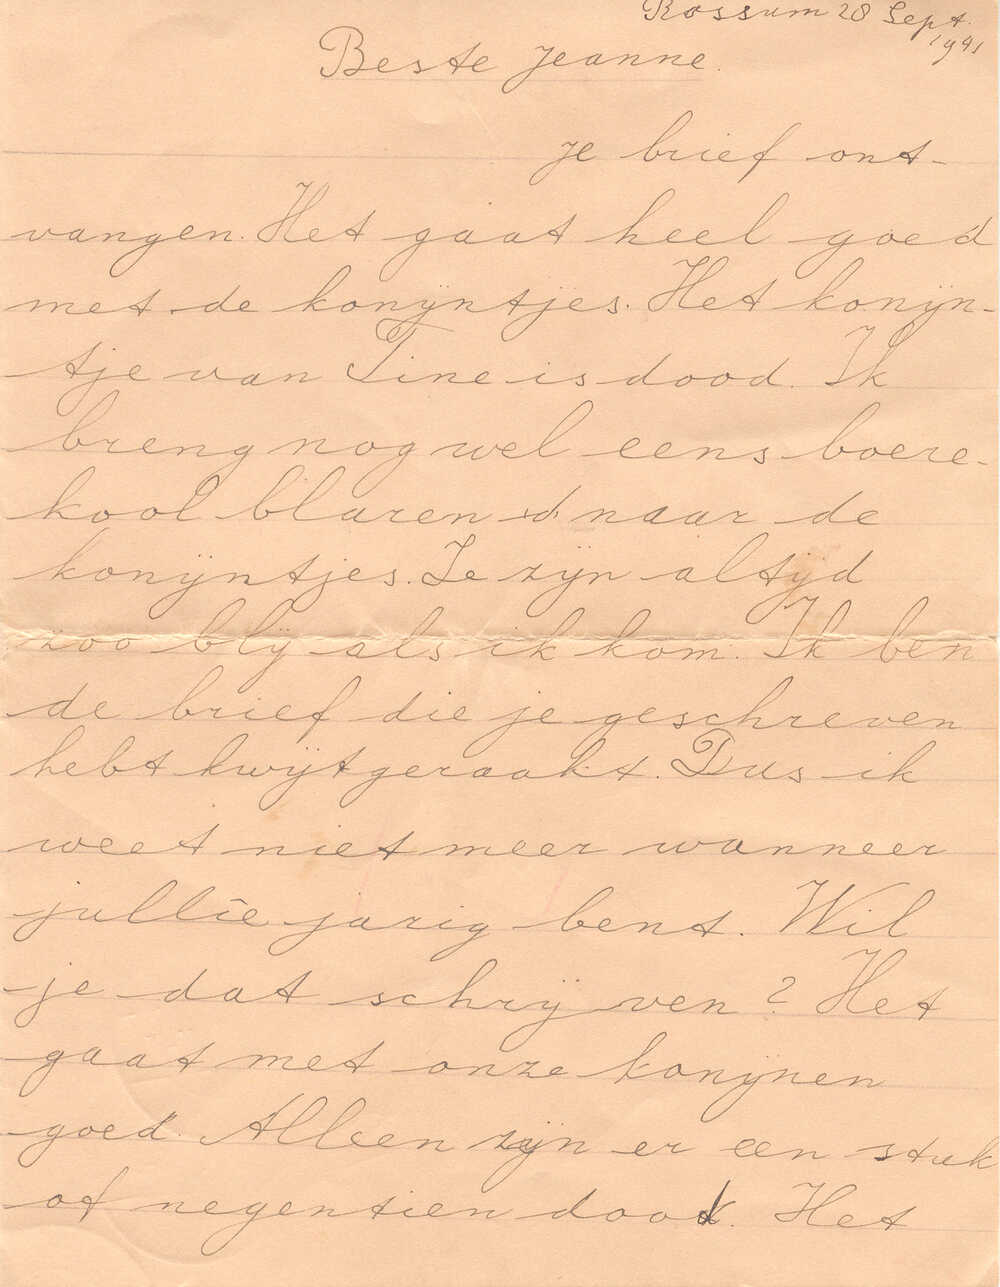 Rossum 28 Sept.
1941
Beste Jeanne.
Je brief ont-
vangen. Het gaat heel goed
met de konijntjes. Het konijn-
tje van Tine is dood. Ik
breng nog wel eens boere-
kool blaren naar de
konijntjes. Ze zijn altijd
zoo blij als ik kom. Ik ben
de brief die je geschreven
hebt kwijtgeraakt. Dus ik
weet niet meer wanneer
jullie jarig bent. Wil
je dat schrijven? Het
gaat met onze konijnen
goed. Alleen zijn er een stuk
of negentien dood. Het